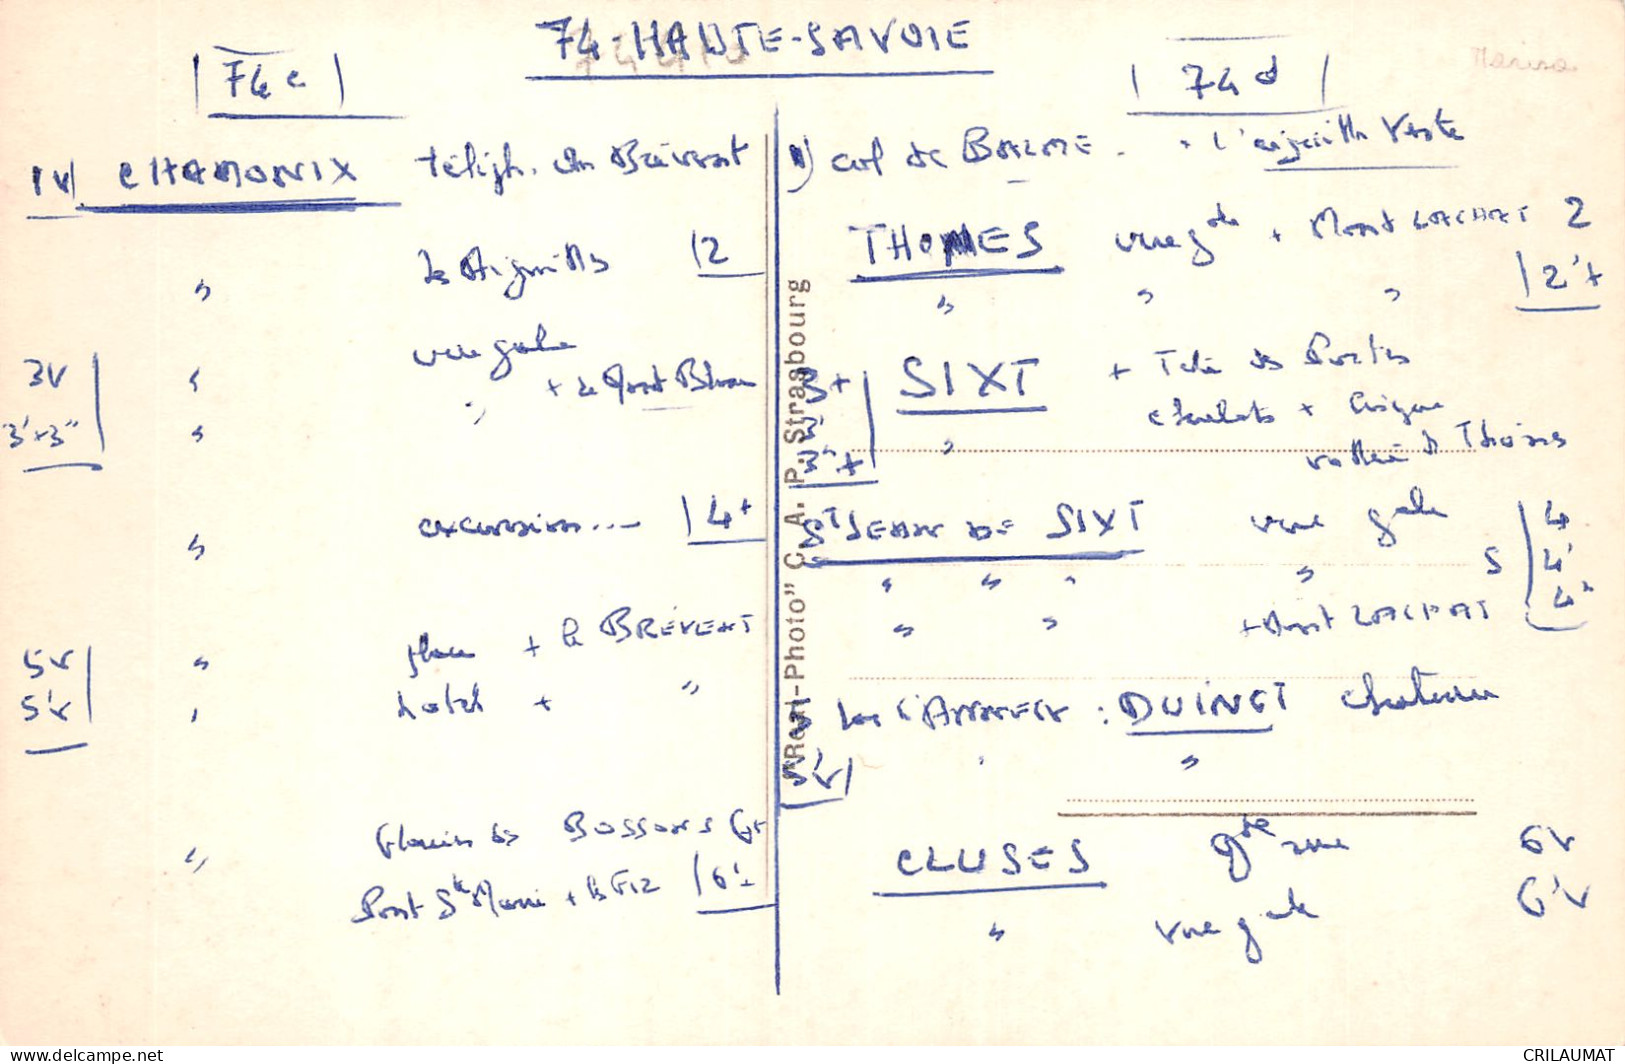 74-HAUTE-SAVOIE
74 c
1V CHAMONIX téléph. du Brévent
" les Aiguilles 12
3V " vue gale + le Mont Blanc
3'+3" " "
" excursion... 4+
5V " place + le BREVENT
5'V " hotel + "
" Glacier des BOSSONS 6+
Pont Ste Marie + le Fiz 6'+
74 d
1) col de BALME - + l'aiguille Verte
THONES vue gde + Mont LACHAT 2
" " " 2'+
3+ SIXT + Tête des
3' chalets + Cirque
3"+ " vallée de Thônes
ST JEAN DE SIXT vue gale 4
" " " " S 4'
" " + Mont LACHAT 4"
5 lac d'ANNECY : DUINGT chateau
5'V " "
CLUSES gde rue 6V
" vue gale 6'V
"Real-Photo" C. A. P. Strasbourg
CRILAUMAT